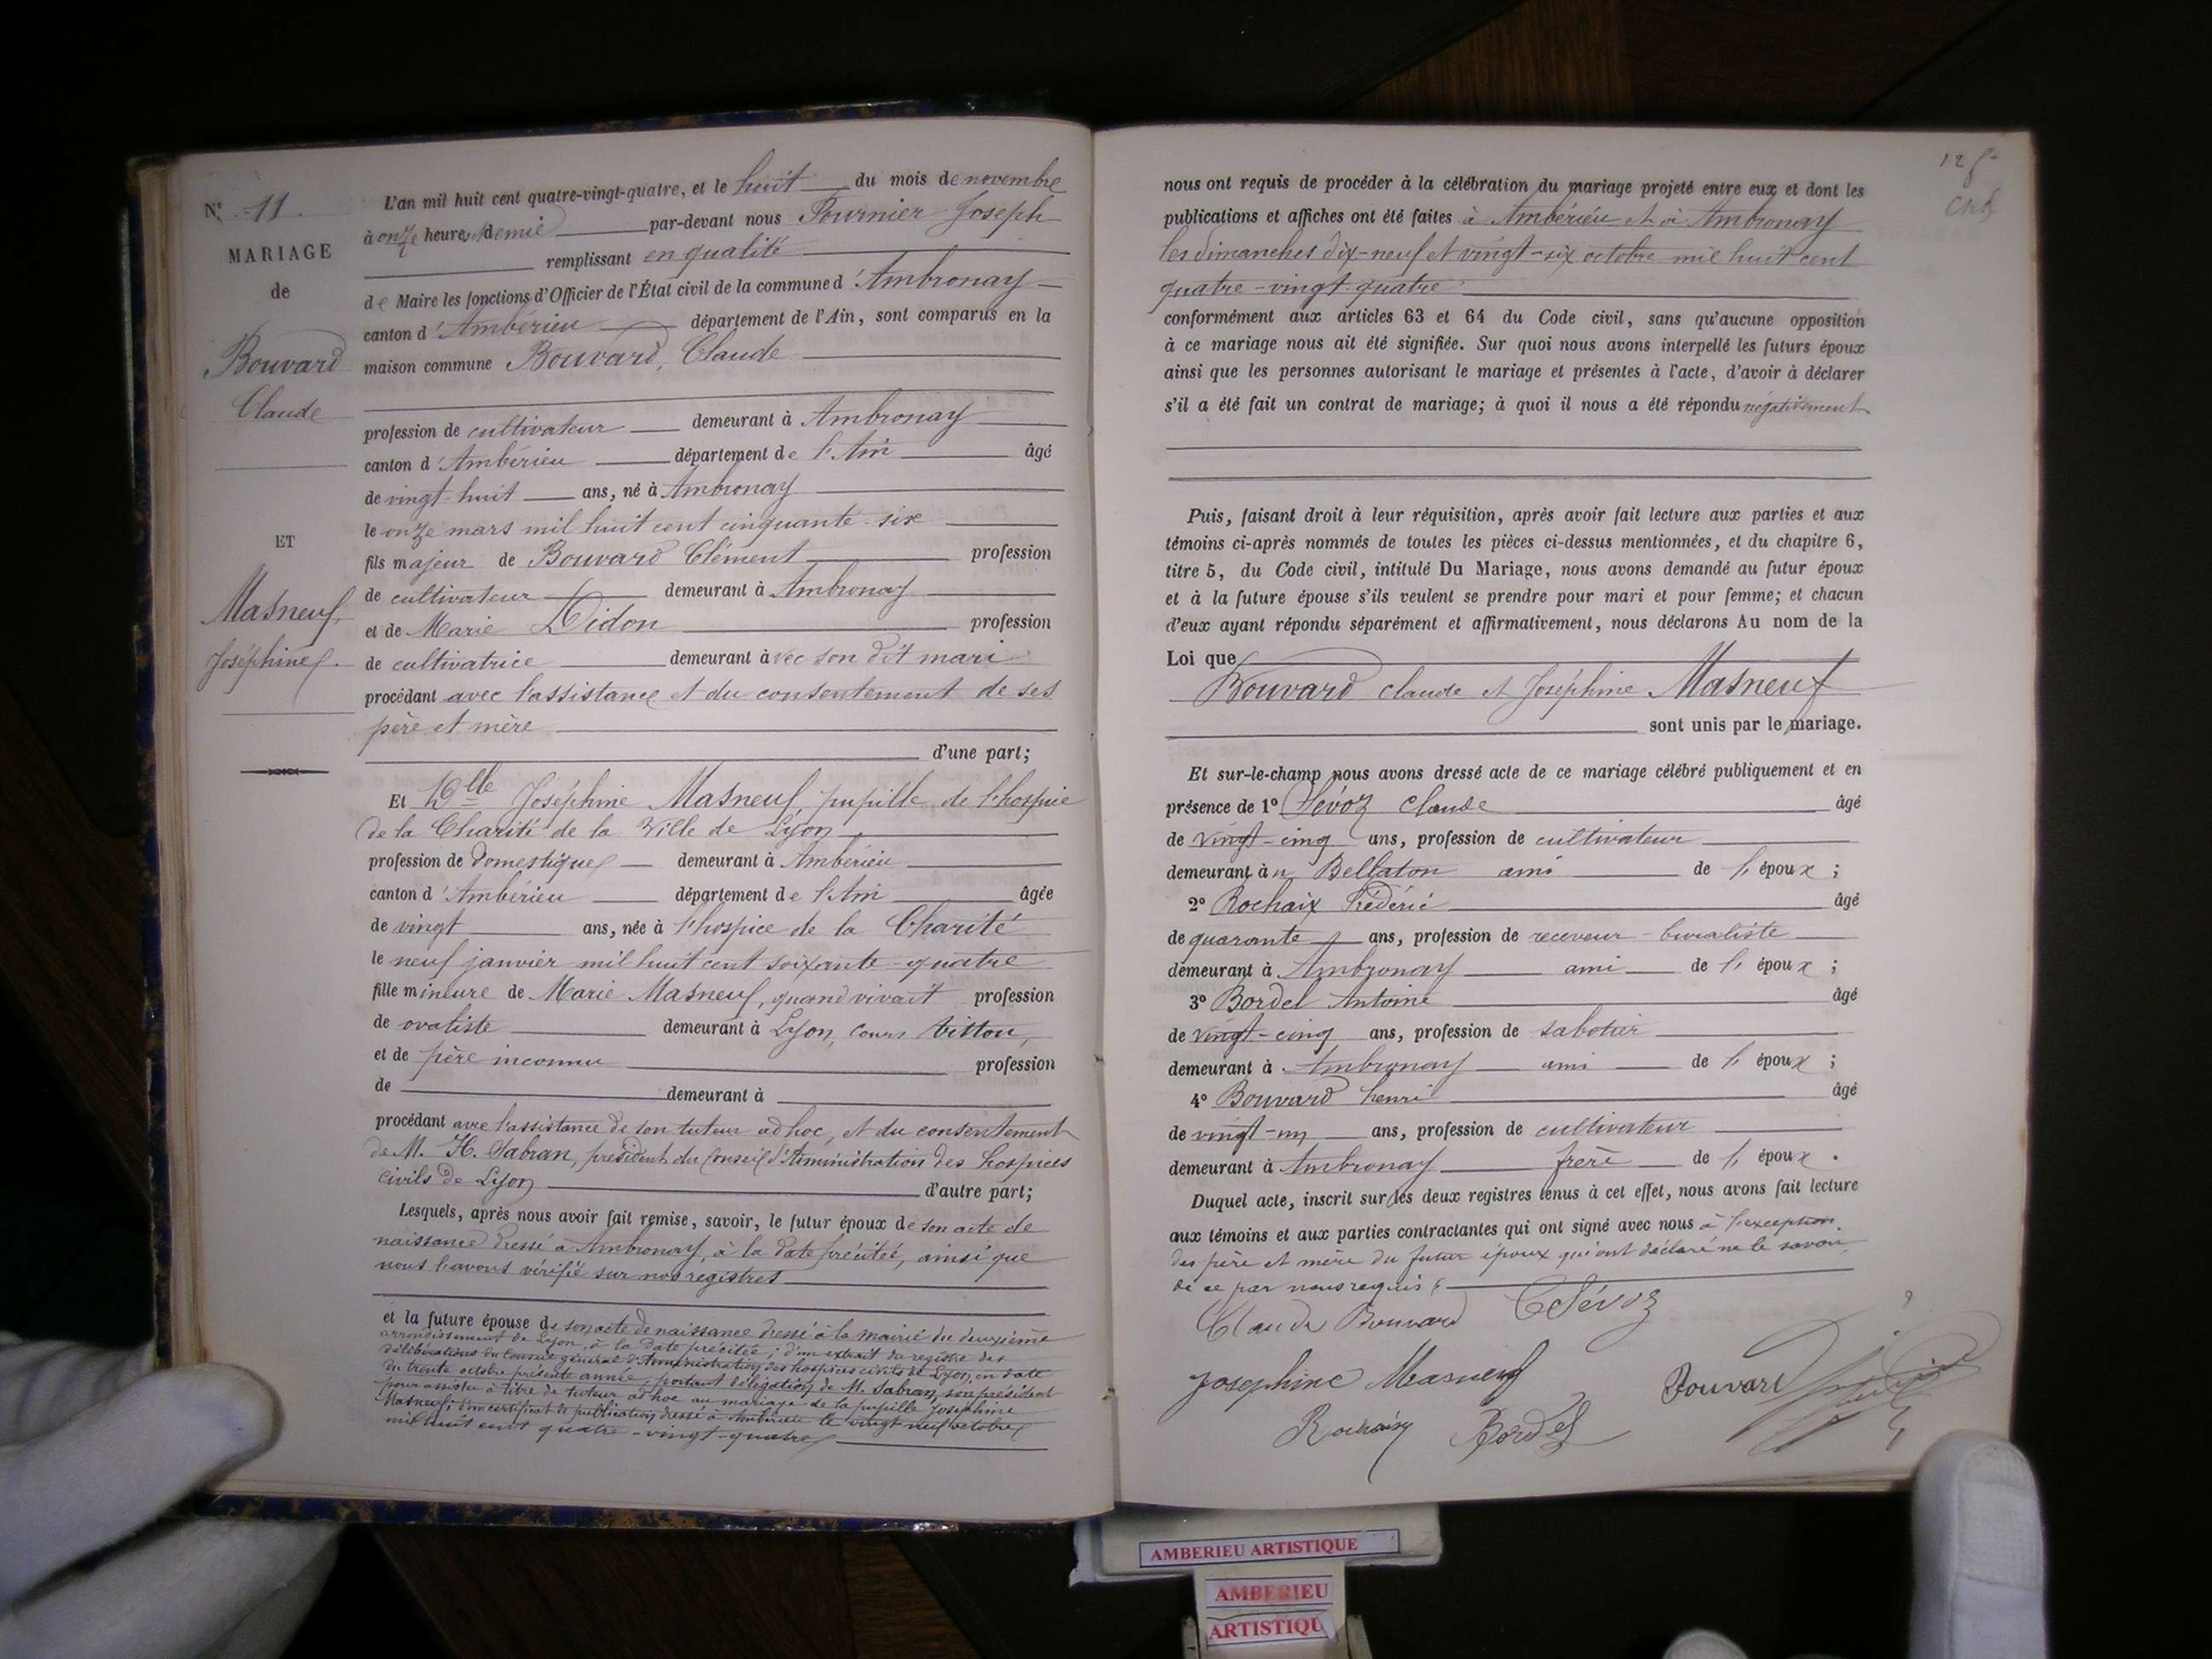 N° 11.
MARIAGE
de
Bouvard
Claude
ET
Masneuf,
Joséphine.
L'an mil huit cent quatre-vingt-quatre, et le huit du mois de novembre
à onze heures et demie par-devant nous Fournier Joseph
remplissant en qualité
de Maire les fonctions d'Officier de l'État civil de la commune d'Ambronay
canton d'Ambérieu département de l'Ain, sont comparus en la
maison commune Bouvard, Claude
profession de cultivateur demeurant à Ambronay
canton d'Ambérieu département de l'Ain âgé
de vingt-huit ans, né à Ambronay
le onze mars mil huit cent cinquante-six
fils majeur de Bouvard Clément profession
de cultivateur demeurant à Ambronay
et de Marie Didon profession
de cultivatrice demeurant avec son dit mari
procédant avec l'assistance et du consentement de ses
père et mère
d'une part;
Et Dlle Joséphine Masneuf, pupille de l'hospice
de la Charité de la Ville de Lyon
profession de domestique demeurant à Ambérieu
canton d'Ambérieu département de l'Ain âgée
de vingt ans, née à l'hospice de la Charité
le neuf janvier mil huit cent soixante-quatre
fille mineure de Marie Masneuf, quand vivait profession
de ovaliste demeurant à Lyon, cours Vitton,
et de père inconnu profession
de demeurant à
procédant avec l'assistance de son tuteur ad hoc, et du consentement
de M. H. Sabran, président du Conseil d'Administration des hospices
civils de Lyon d'autre part;
Lesquels, après nous avoir fait remise, savoir, le futur époux de son acte de
naissance dressé à Ambronay, à la date précitée, ainsi que
nous l'avons vérifié sur nos registres
et la future épouse de son acte de naissance dressé à la mairie du deuxième
arrondissement de Lyon, à la date précitée; d'un extrait du registre des
délibérations du Conseil général d'Administration des hospices civils de Lyon, en date
du trente octobre présente année, portant délégation de M. Sabran, son président
pour assister à titre de tuteur ad hoc au mariage de la pupille Joséphine
Masneuf; d'un certificat de publication dressé à Ambérieu le vingt-neuf octobre
mil huit cent quatre-vingt-quatre
nous ont requis de procéder à la célébration du mariage projeté entre eux et dont les
publications et affiches ont été faites à Ambérieu et à Ambronay
les dimanches dix-neuf et vingt-six octobre mil huit cent
quatre-vingt-quatre
conformément aux articles 63 et 64 du Code civil, sans qu'aucune opposition
à ce mariage nous ait été signifiée. Sur quoi nous avons interpellé les futurs époux
ainsi que les personnes autorisant le mariage et présentes à l'acte, d'avoir à déclarer
s'il a été fait un contrat de mariage; à quoi il nous a été répondu négativement
Puis, faisant droit à leur réquisition, après avoir fait lecture aux parties et aux
témoins ci-après nommés de toutes les pièces ci-dessus mentionnées, et du chapitre 6,
titre 5, du Code civil, intitulé Du Mariage, nous avons demandé au futur époux
et à la future épouse s'ils veulent se prendre pour mari et pour femme; et chacun
d'eux ayant répondu séparément et affirmativement, nous déclarons Au nom de la
Loi que
Bouvard Claude et Joséphine Masneuf
sont unis par le mariage.
Et sur-le-champ nous avons dressé acte de ce mariage célébré publiquement et en
présence de 1° Sévoz Claude âgé
de vingt-cinq ans, profession de cultivateur
demeurant à Bellaton ami de l'époux;
2° Rochaix Frédéric âgé
de quarante ans, profession de receveur-buraliste
demeurant à Ambronay ami de l'époux;
3° Bordel Antoine âgé
de vingt-cinq ans, profession de sabotier
demeurant à Ambronay ami de l'époux;
4° Bouvard henri âgé
de vingt-un ans, profession de cultivateur
demeurant à Ambronay frère de l'époux.
Duquel acte, inscrit sur les deux registres tenus à cet effet, nous avons fait lecture
aux témoins et aux parties contractantes qui ont signé avec nous à l'exception
des père et mère du futur époux qui ont déclaré ne le savoir
de ce par nous requis.
Claude Bouvard CSévoz
Josephine Masneuf Bouvard
Rochaix Bordel
AMBERIEU ARTISTIQUE
AMBERIEU
ARTISTIQU